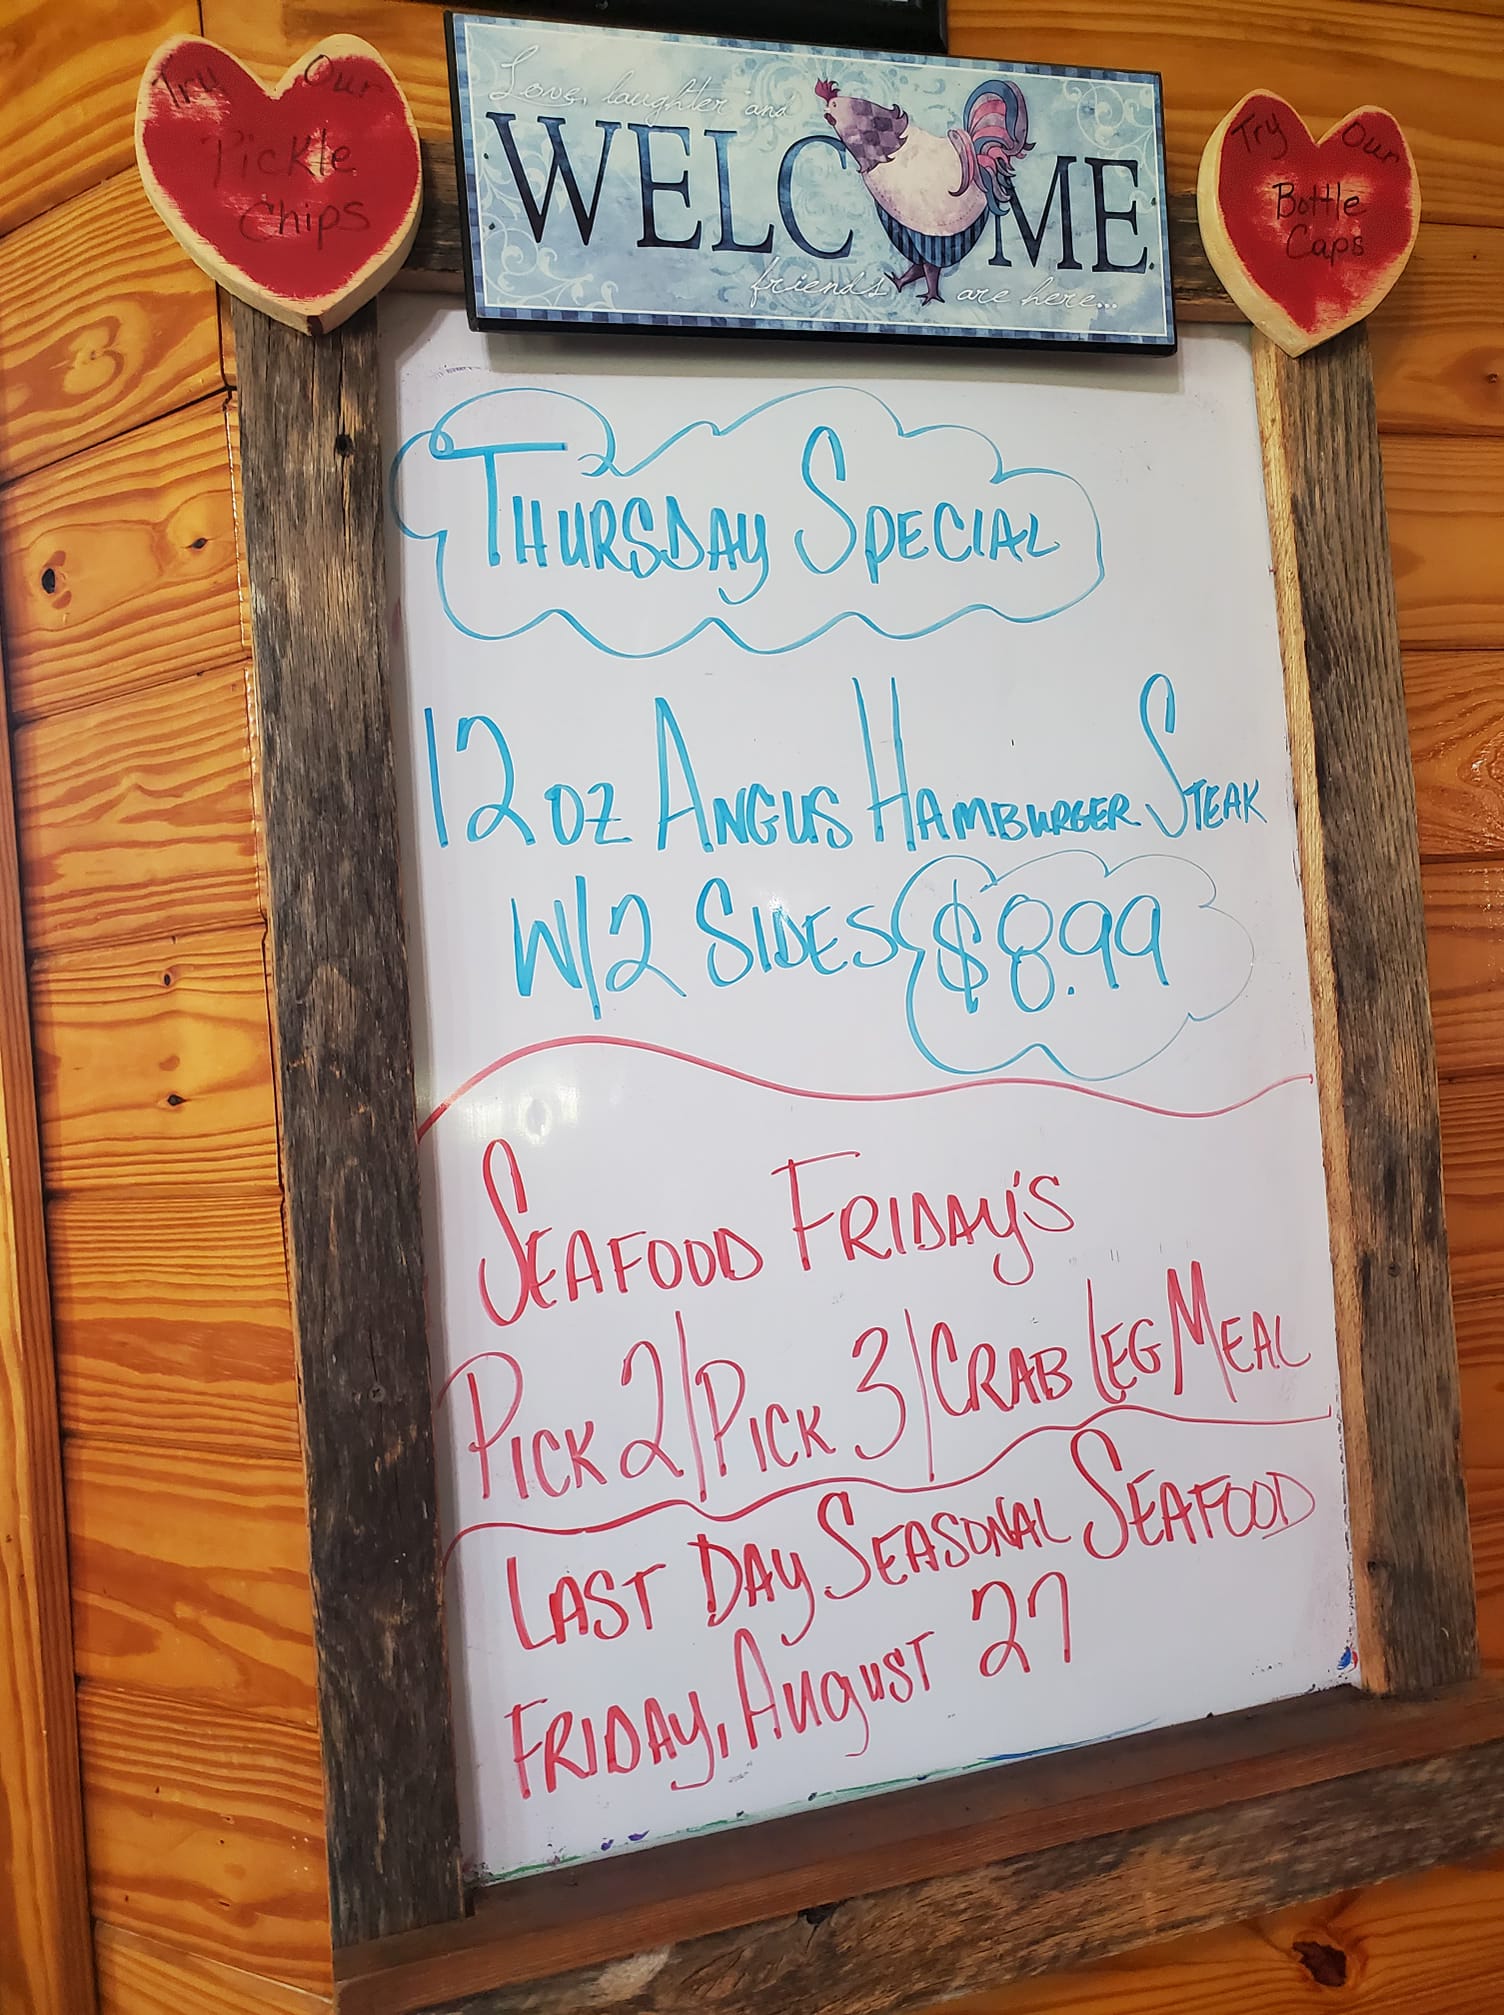 Try Our
Pickle
Chips
Love, laughter and
WELCOME
friends are here...
Try Our
Bottle
Caps
THURSDAY SPECIAL
12 OZ ANGUS HAMBURGER STEAK
W/2 SIDES $8.99
SEAFOOD FRIDAY'S
PICK 2/PICK 3/CRAB LEG MEAL
LAST DAY SEASONAL SEAFOOD
FRIDAY, AUGUST 27